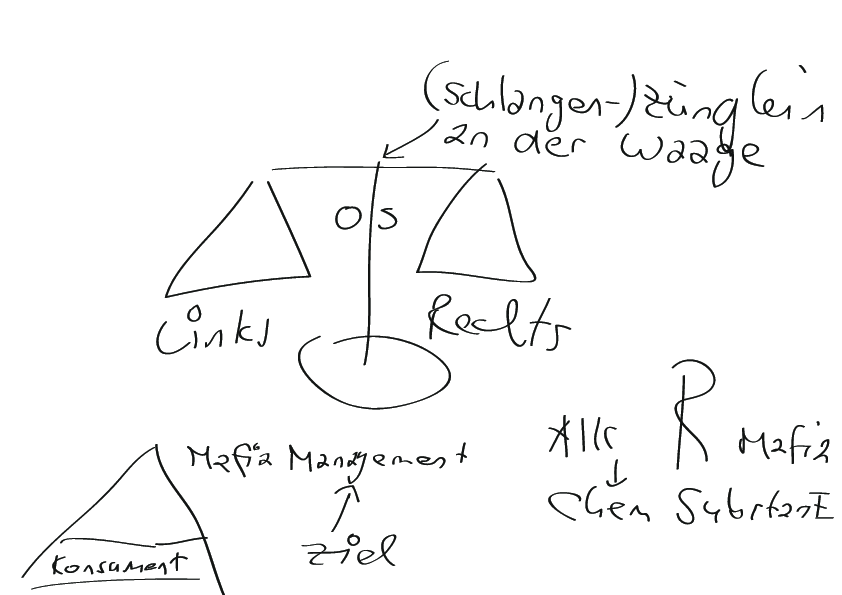 (schlangen-)zünglein
an der Waage
O S
Links
Rechts
Mafia Management
Ziel
Konsument
R Mafia
Chem Substanz